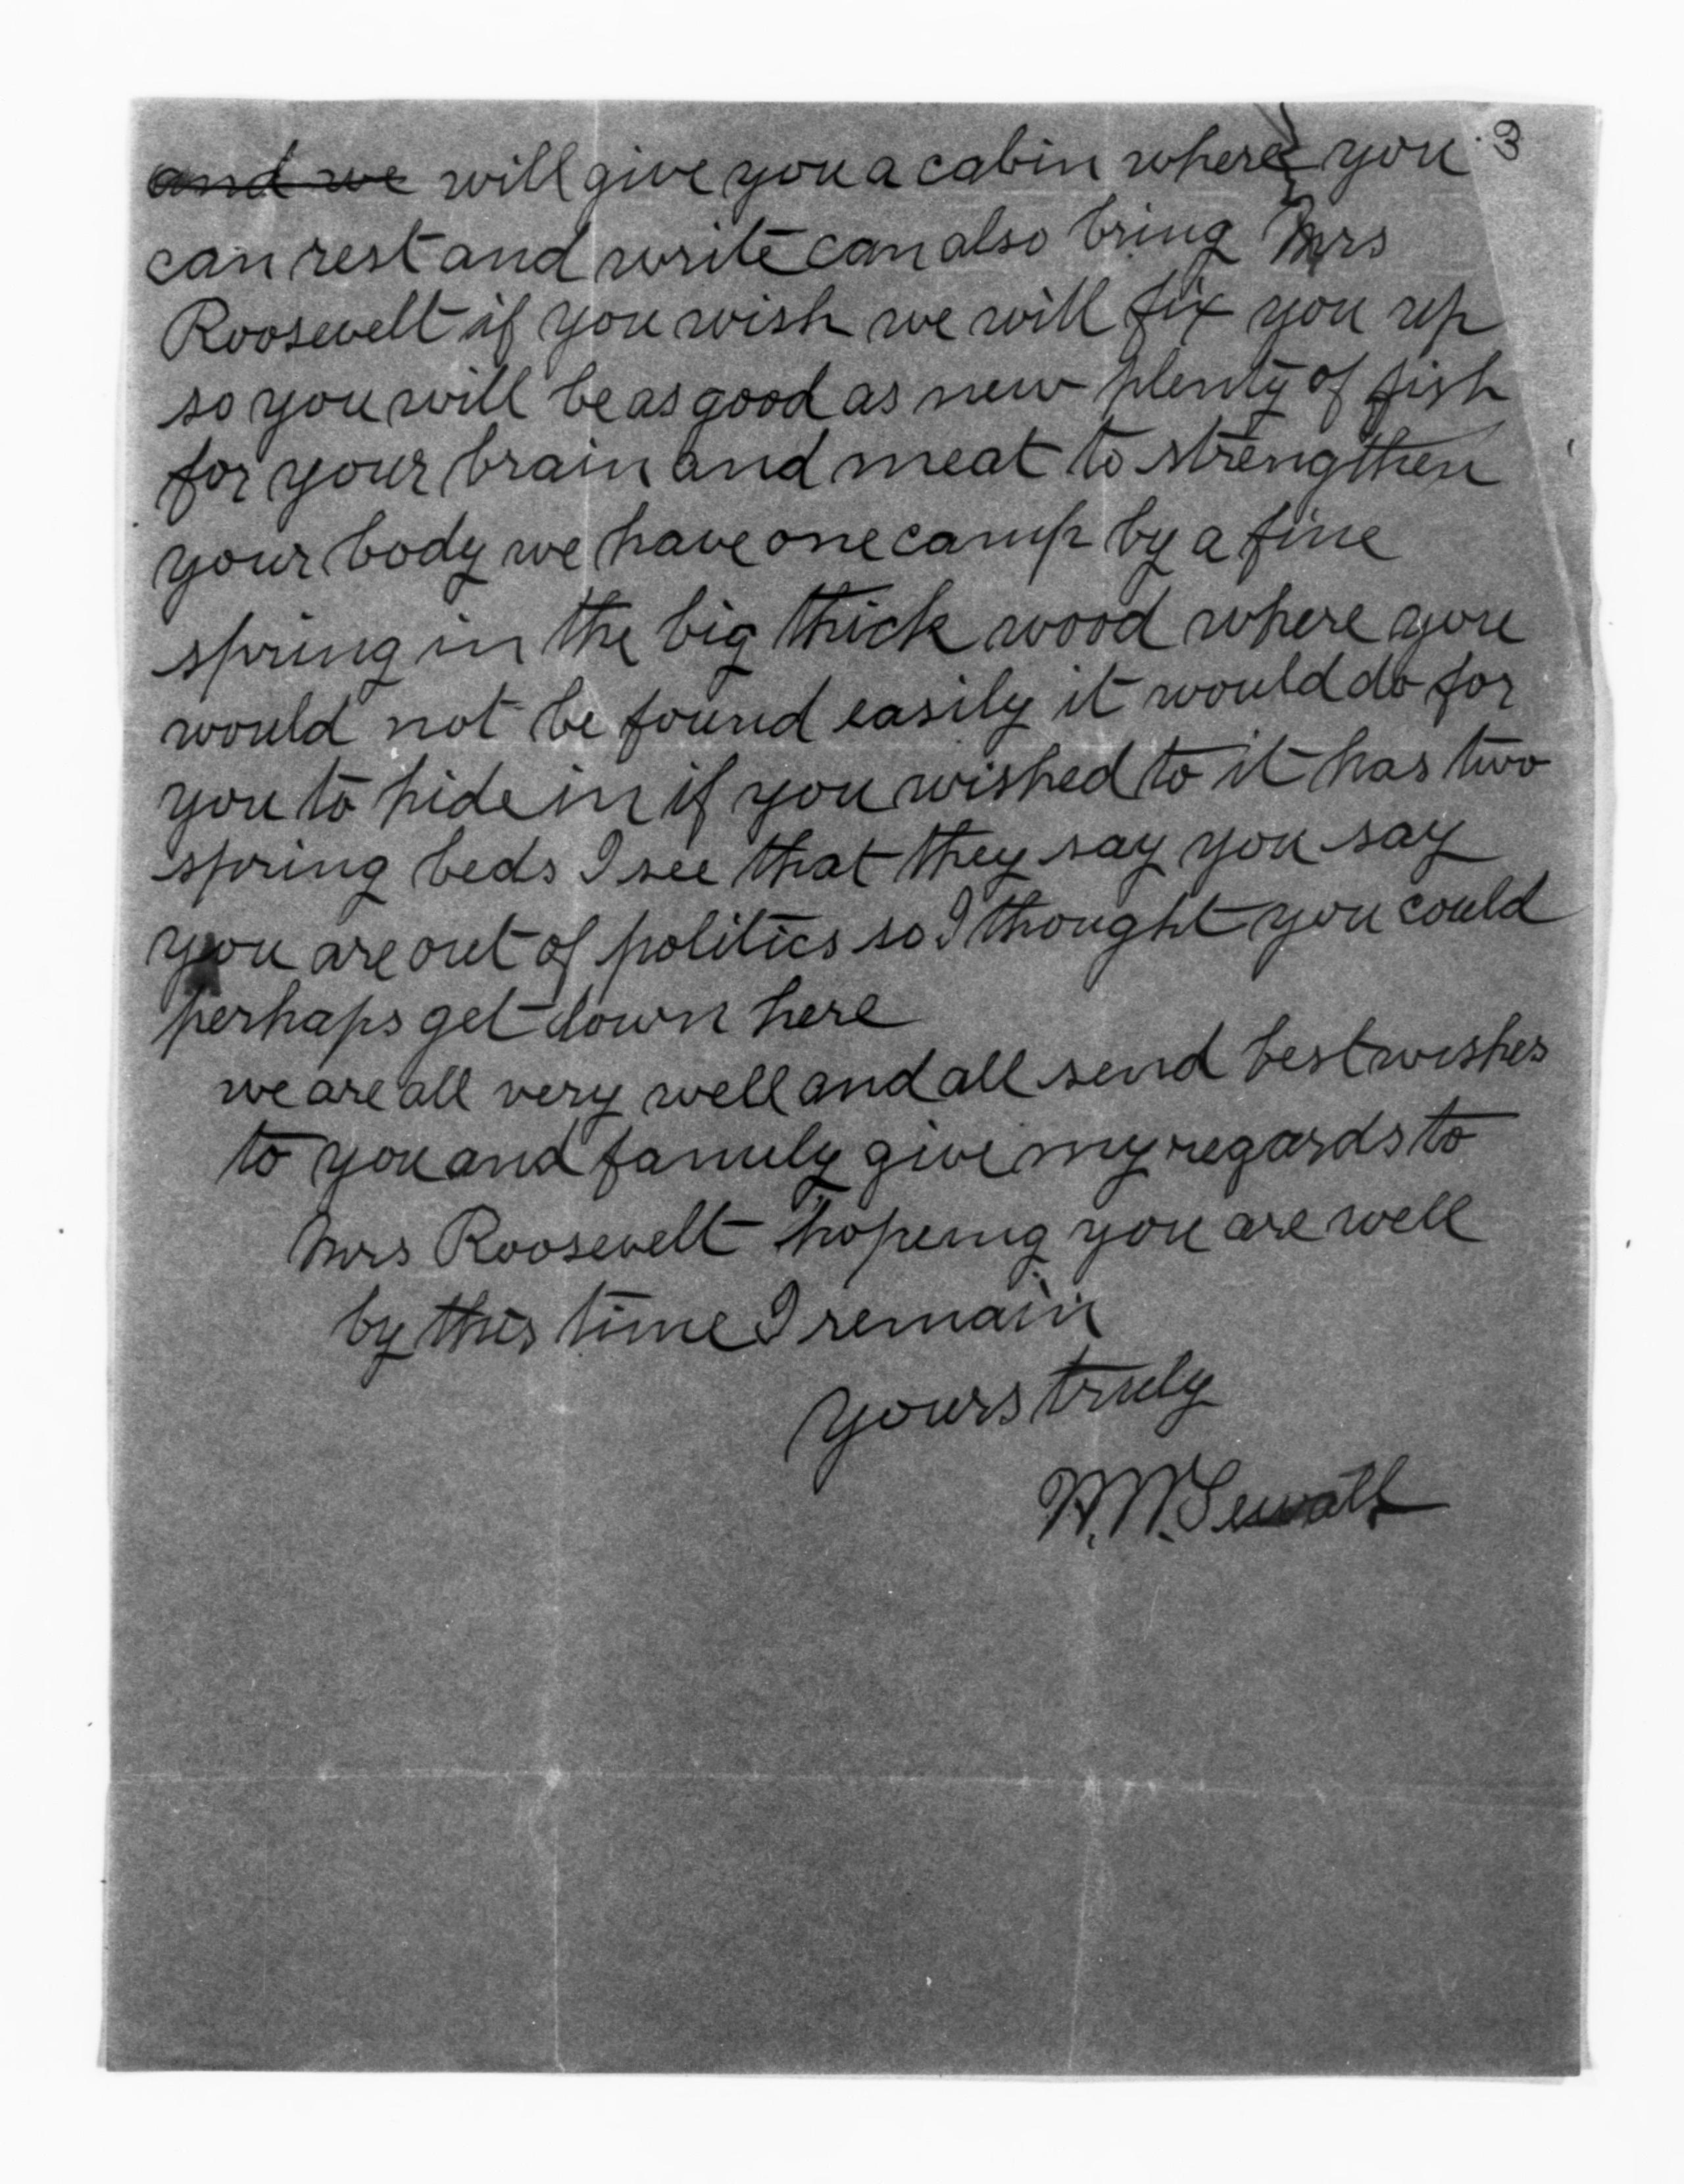 3
and we will give you a cabin where you
can rest and write can also bring Mrs
Roosevelt if you wish we will fix you up
so you will be as good as new plenty of fish
for your brain and meat to strengthen
your body we have one camp by a fine
spring in the big thick wood where you
would not be found easily it would do for
you to hide in if you wished to it has two
spring beds I see that they say you say
you are out of politics so I thought you could
perhaps get down here
we are all very well and all send best wishes
to you and family give my regards to
Mrs Roosevelt hopeing you are well
by this time I remain
yours truly
W. W. Sewall